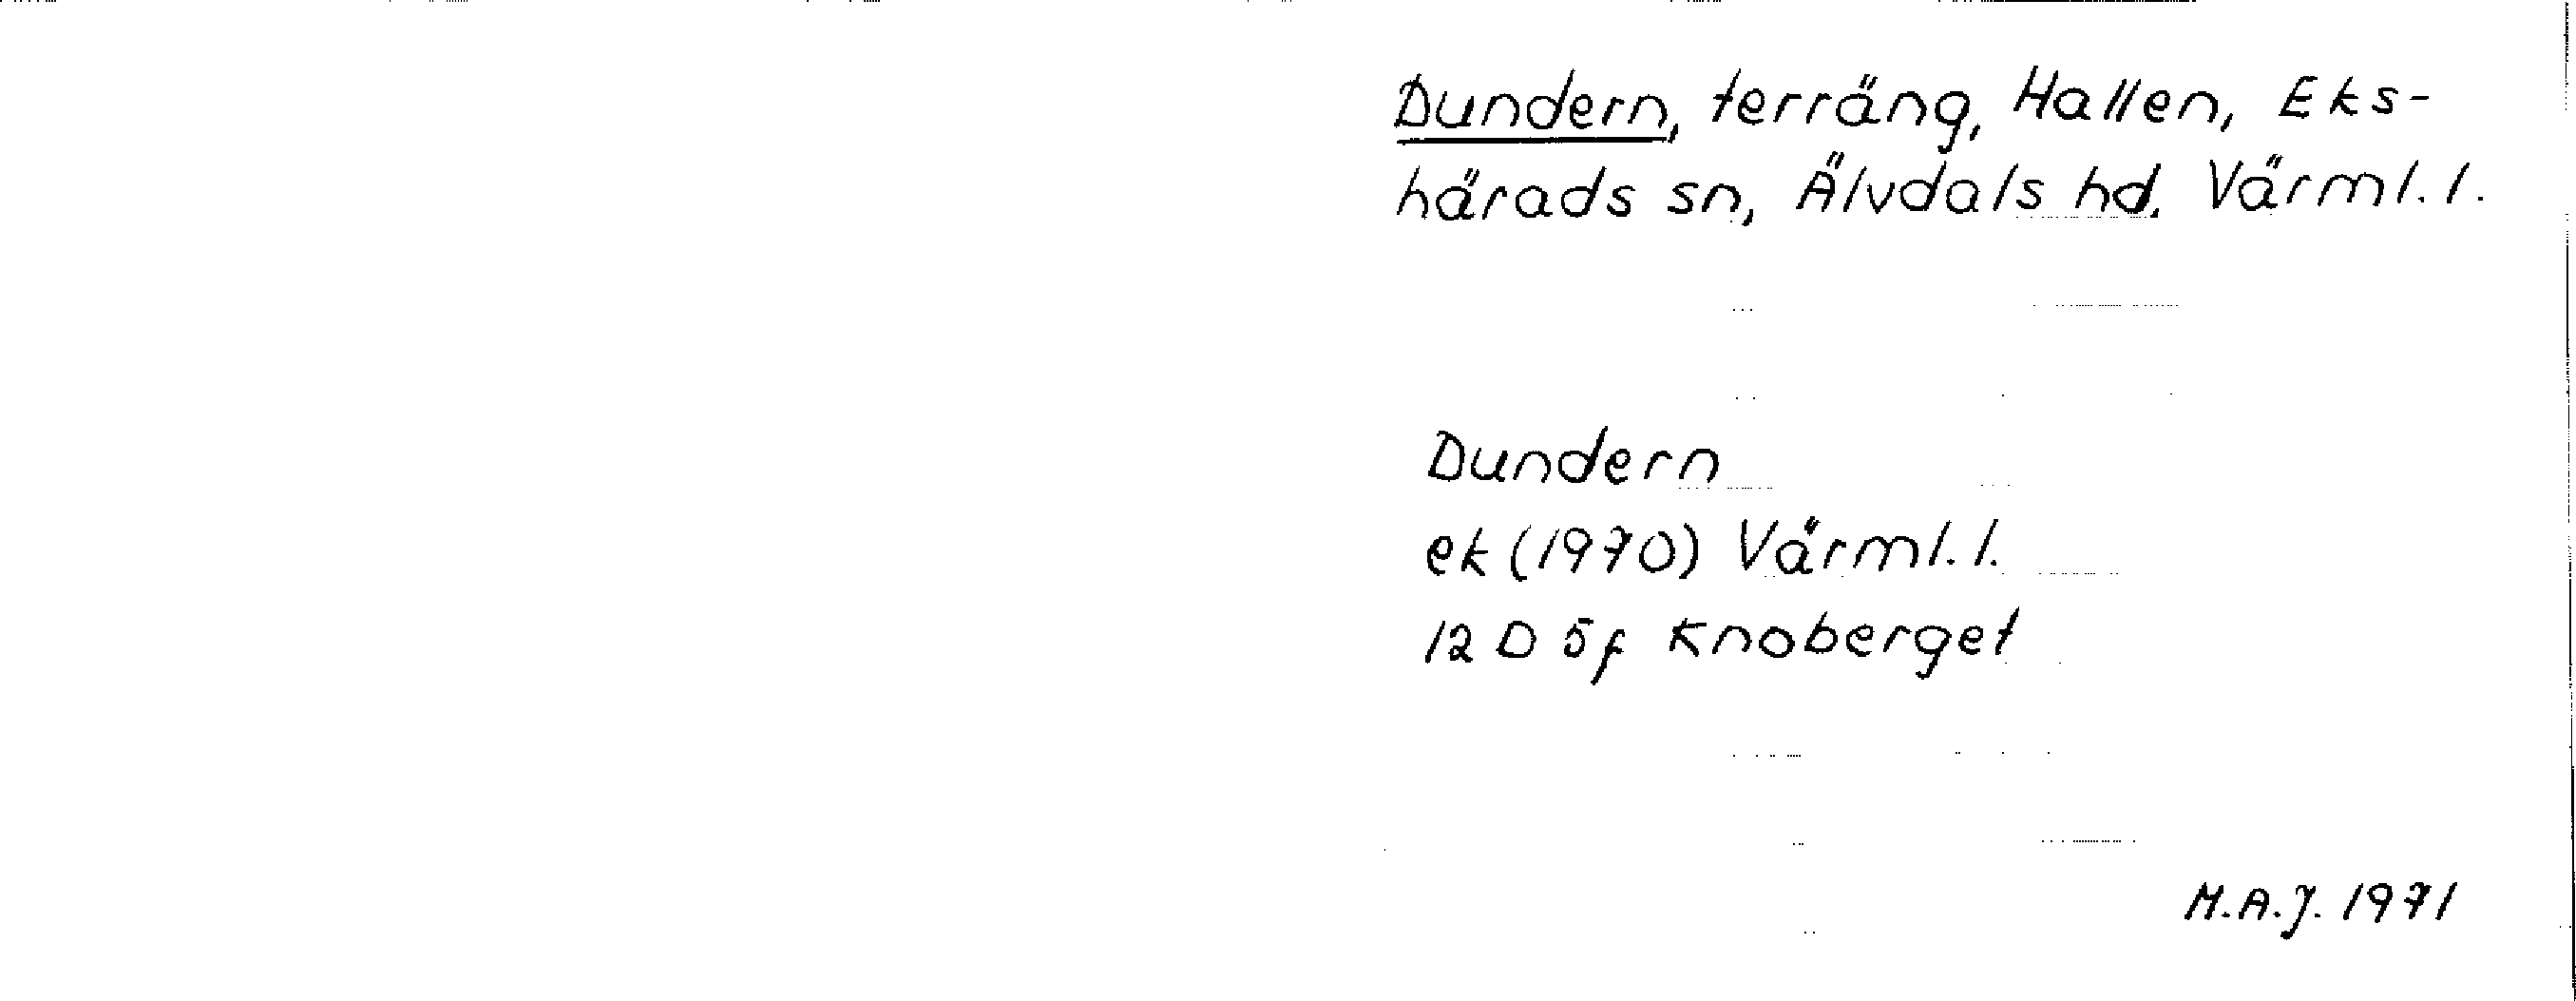 Dundern, terräng, Hallen, Eks-
härads sn, Älvdals hd. Värml. l.
Dundern
ek (1970) Värml. l.
12 D 5f Knoberget
M.A.J. 1971